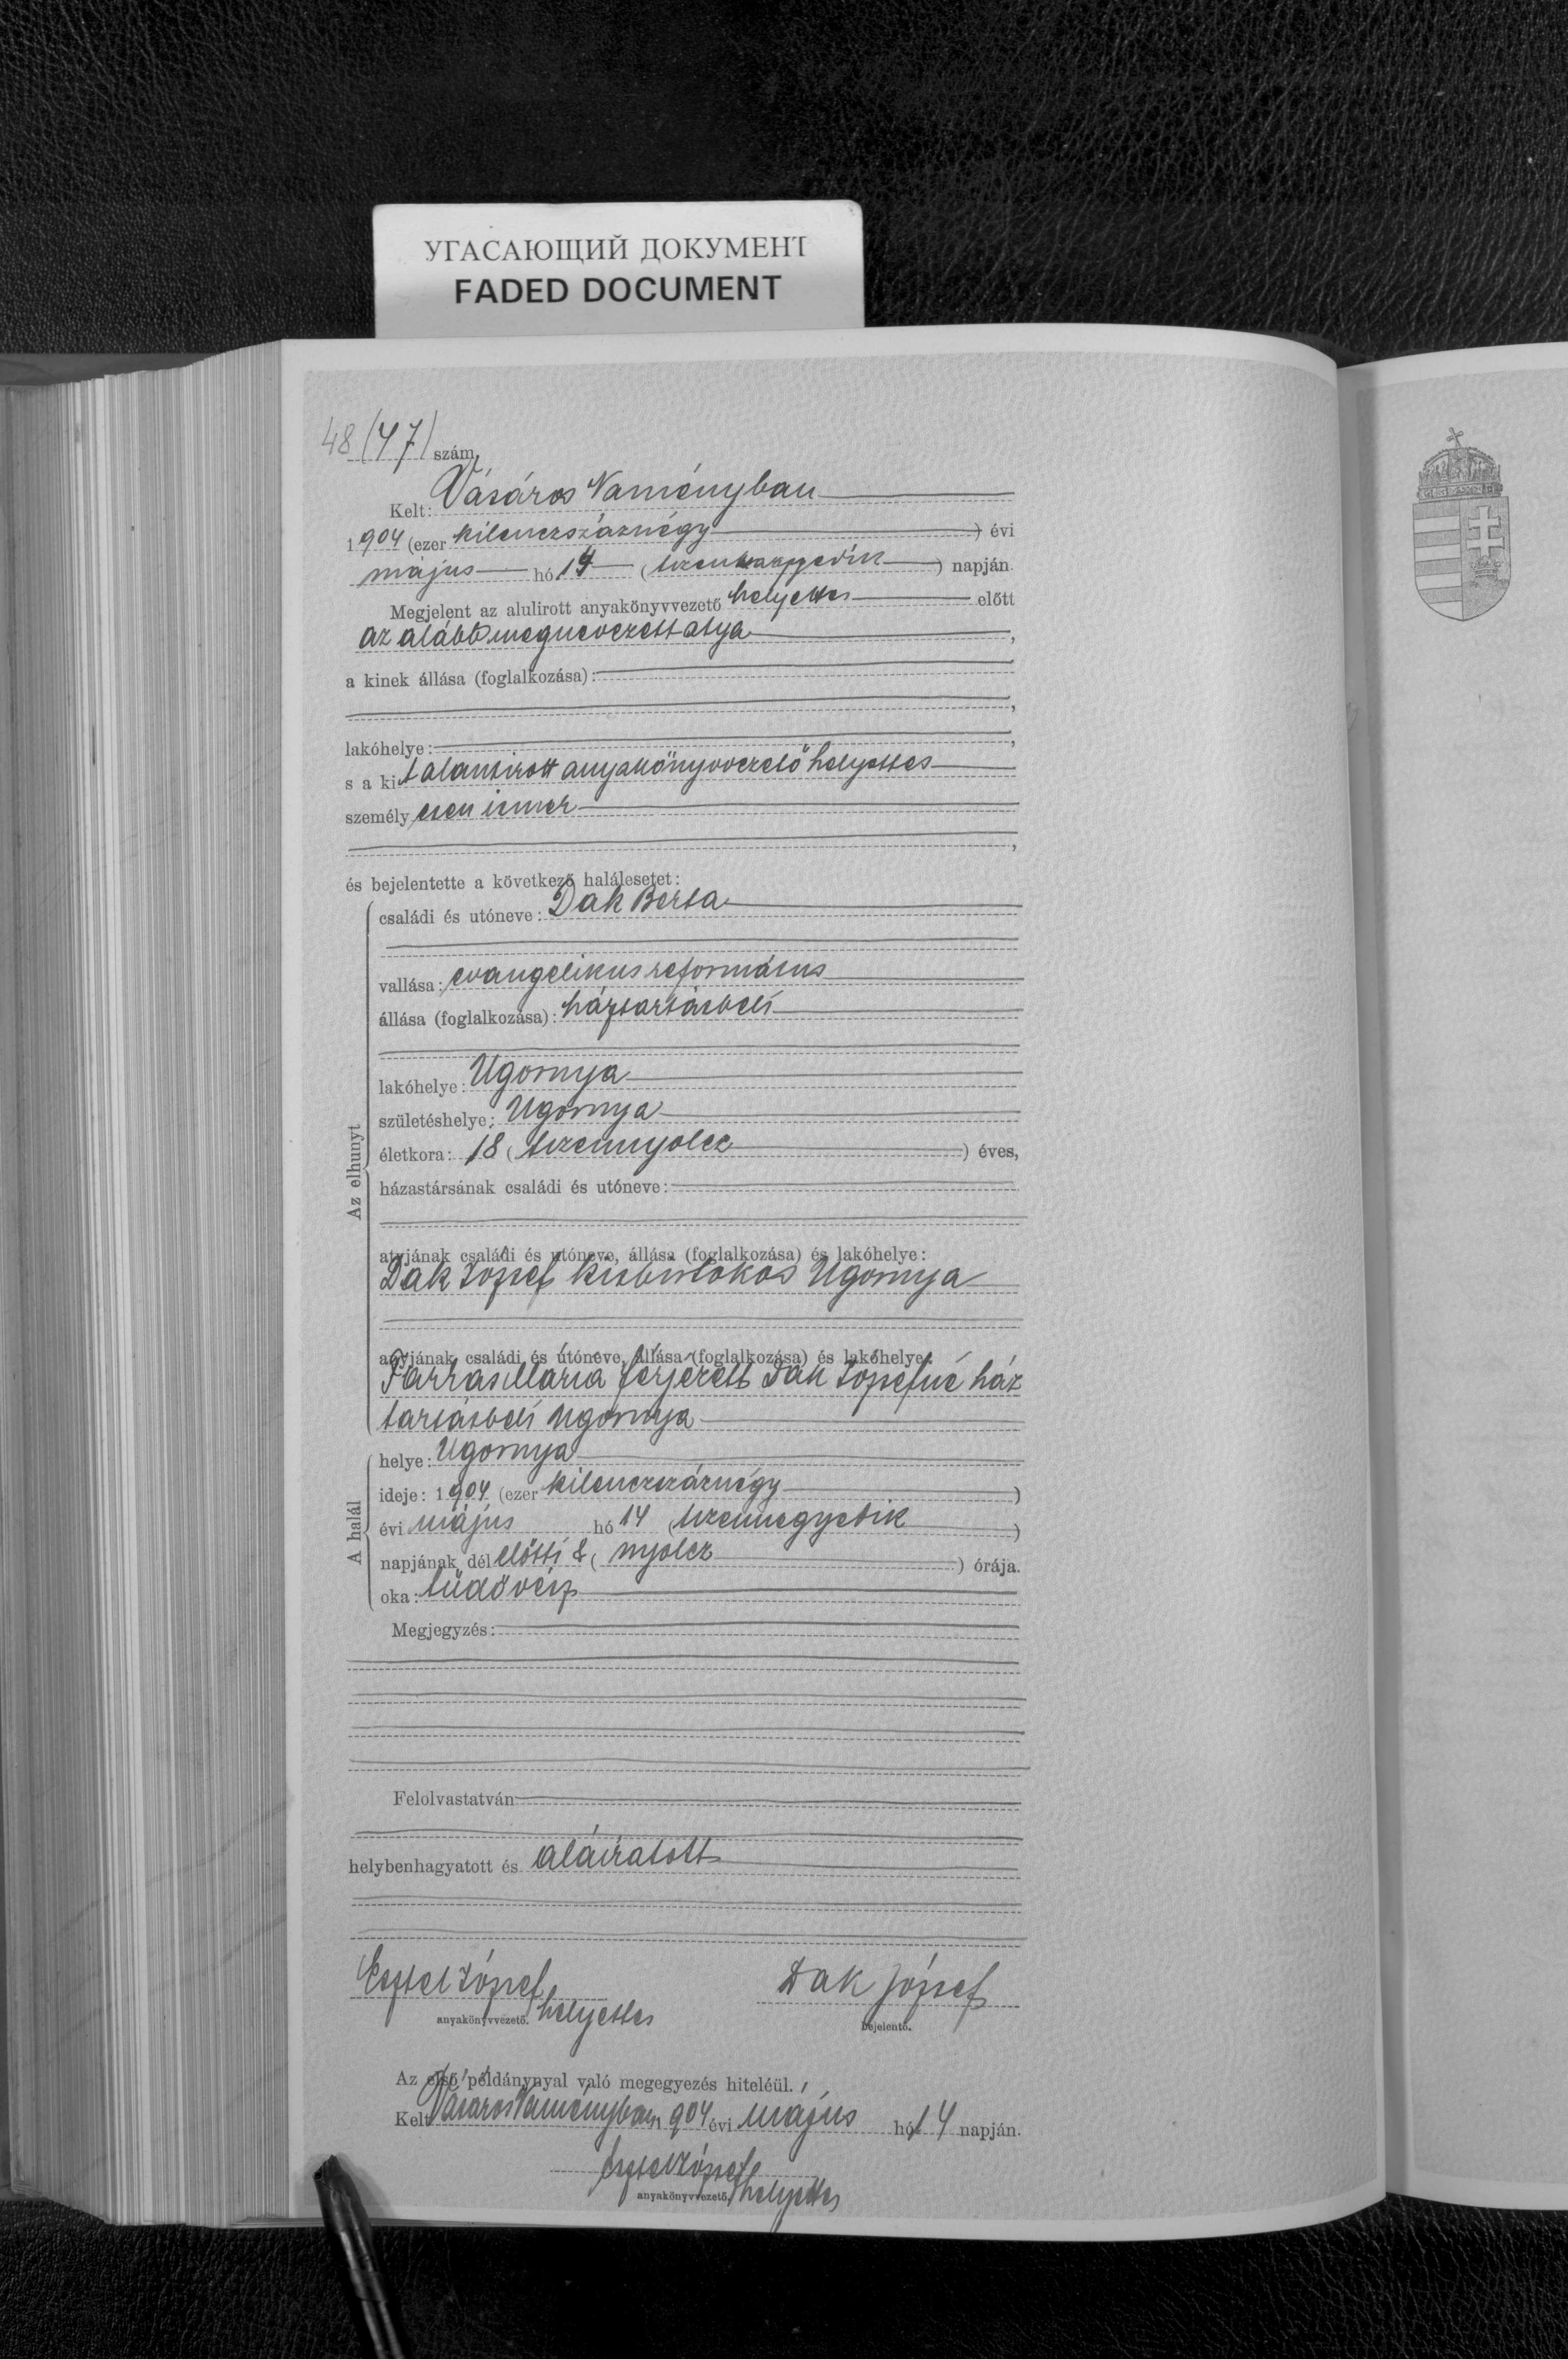 УГАСАЮЩИЙ ДОКУМЕНТ
FADED DOCUMENT
48 (47) szám
Kelt: Vásáros Naményban
1904 (ezer kilenczszáznégy) évi
május hó 14 (tizennegyedik) napján.
Megjelent az alulirott anyakönyvvezető helyettes előtt
az alább megnevezett atya,
a kinek állása (foglalkozása):
lakóhelye:
s a kit alantirott anyakönyvvezető helyettes
személyesen ismer
és bejelentette a következő halálesetet:
Az elhunyt
családi és utóneve: Dak Berta
vallása: evangelikus református
állása (foglalkozása): háztartásbeli
lakóhelye: Ugornya
születéshelye: Ugornya
életkora: 18 (tizennyolcz) éves,
házastársának családi és utóneve:
atyjának családi és utóneve, állása (foglalkozása) és lakóhelye:
Dak József kisbirtokos Ugornya
anyjának családi és utóneve, állása (foglalkozása) és lakóhelye:
Farkas Mária férjezett Dak Józsefné ház
tartásbeli Ugornya
A halál
helye: Ugornya
ideje: 1904 (ezer kilenczszáznégy)
évi május hó 14 (tizennegyedik)
napjának dél előtti 8 (nyolcz) órája.
oka: tüdővész
Megjegyzés:
Felolvastatván
helybenhagyatott és aláiratott
József Dak József
anyakönyvvezető. helyettes bejelentő.
Az első példánynyal való megegyezés hiteléül.
Kelt Vásáros Naményban 1904 évi május hó 14 napján.
József
anyakönyvvezető. helyettes